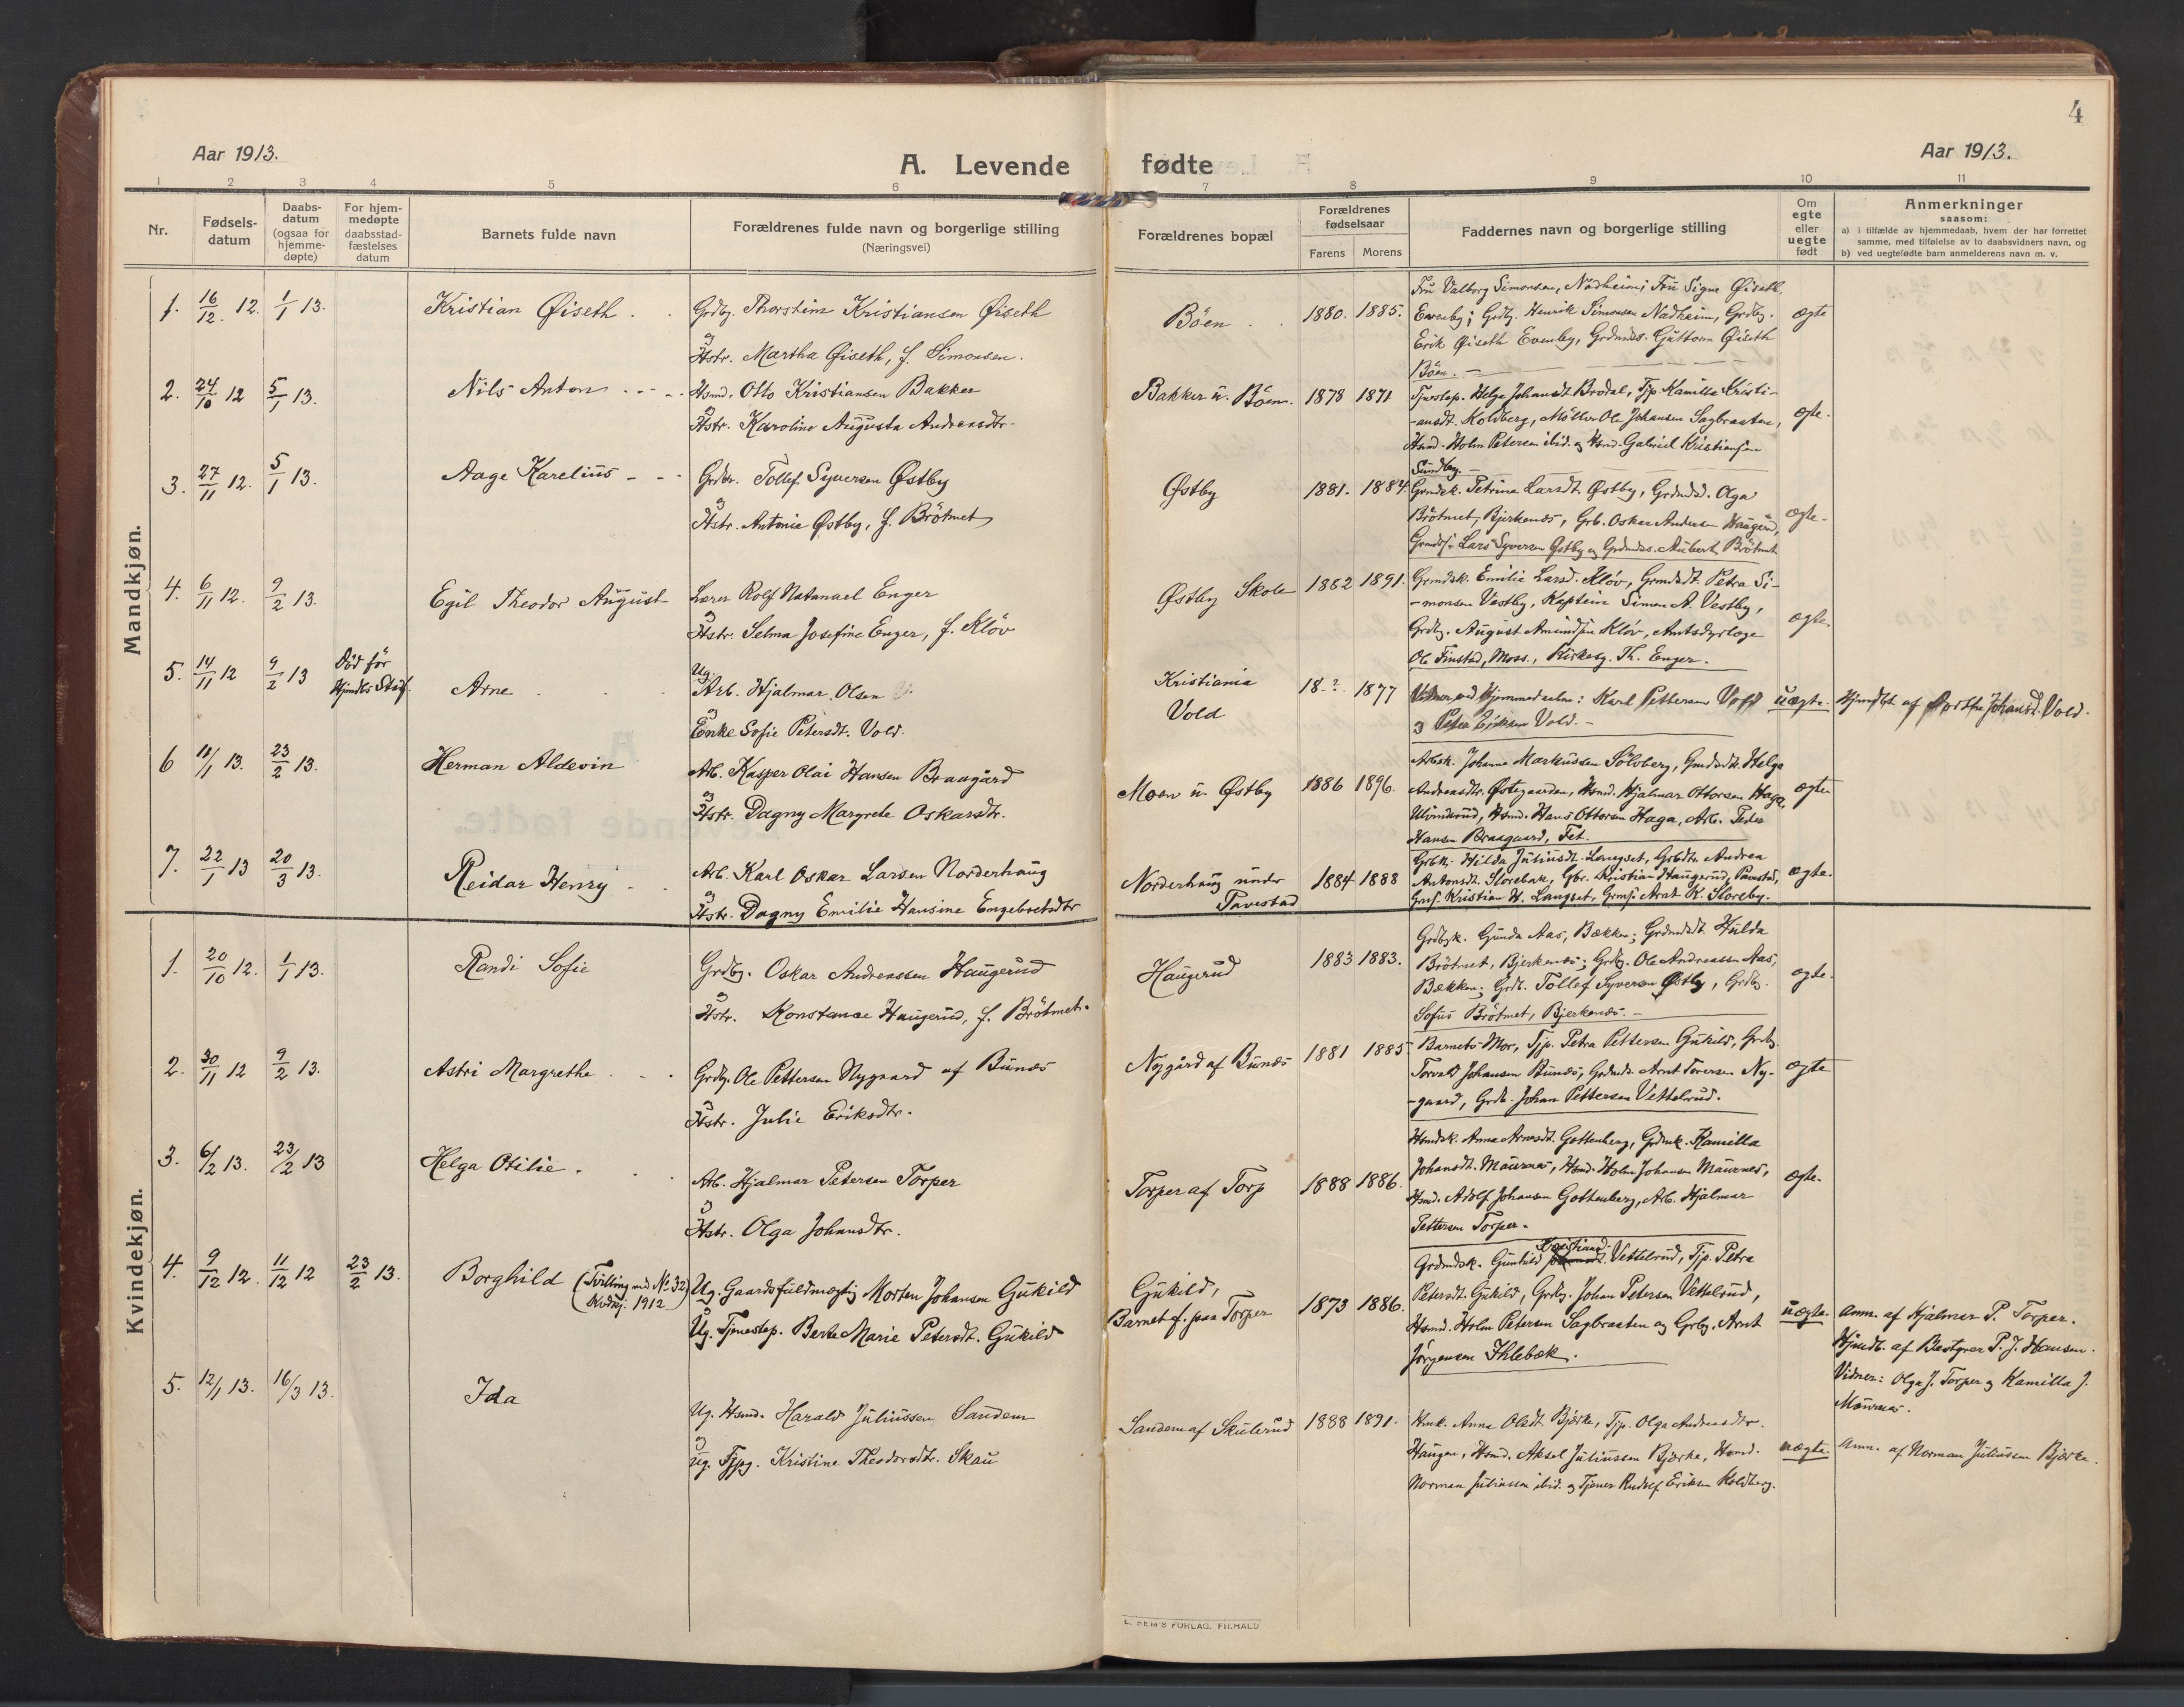 4
Aar 1913.
A. Levende fødte
Aar 1913.
1 2 3 4 5 6 7 8 9 10 11
Nr.
Fødsels-
datum
Daabs-
datum
(ogsaa for
hjemme-
døpte)
For hjem-
medøpte
daabsstad-
fæstelses
datum
Barnets fulde navn
Forældrenes fulde navn og borgerlige stilling
(Næringsvei)
Forældrenes bopæl
Forældrenes
fødselsaar
Farens Morens
Faddernes navn og borgerlige stilling
Om
egte
eller
uegte
født
Anmerkninger
saasom:
a) i tilfælde av hjemmedaab, hvem der har forrettet
samme, med tilføielse av to daabsvidners navn, og
b) ved uegtefødte barn anmelderens navn m. v.
Mandkjøn.
1. 16/12 12. 1/1 13.
Kristian Øiseth
Grdbg. Thorstein Kristiansen Øiseth
og
Hstr. Martha Øiseth, f. Simonsen.
Böen
1880. 1885.
Fru Valborg Simonsen, Nadheim; Fru Signe Øiseth,
Evenby; Grdbg. Henrik Simonsen Nadheim, Grdbg.
Erik Øiseth Evenby, Grdmds. Guttorm Øiseth
Böen. —
ægte
2. 24/10 12 5/1 13.
Nils Anton
Hsmd. Otto Kristiansen Bakken
og
Hstr. Karoline Augusta Andreasdtr.
Bakken u. Böen.
1878 1871
Tjenstep. Helga Johansdt. Brodal, Tjp. Kamilla Kristi-
-ansdt. Koldberg, Möller Ole Johansen Sagbraaten,
Hsmd. Holm Petersen ibid. og Hsmd. Gabriel Kristiansen
Sundby. —
ægte.
3. 27/11 12. 5/1 13.
Aage Karelius
Grdbr. Tollef Syversen Østby
og
Hstr. Antonie Østby, f. Brötmet
Østby
1881. 1884.
Grmdsk. Petrine Larsdt. Østby, Grdmdsd. Olga
Brötmet, Bjerkenæs, Grb. Oskar Andersen Haugerud,
Grmds. Lars Syversen Østby og Grdmds. Aubert Brötmet
ægte.
4. 6/11 12. 9/2 13.
Egil Theodor August
Lærer Rolf Natanael Enger
og
Hstr. Selma Josefine Enger, f. Kløv
Østby Skole
1882 1891.
Grmdsk. Emilie Larsd. Kløv, Grmdsdt. Petra Si-
-monsen Vestby, Kaptein Simen A. Vestby,
Grdbg. August Amundsen Kløv, Amtsdyrlæge
Ole Finstad, Moss., Kirkesg. Th. Enger.
ægte.
5. 14/11 12 9/2 13
Död før
Arne
Ug.
Arb. Hjalmar Olsen
og
Enke Sofie Petersdt. Vold.
Kristiania
Vold
18-? 1877
Vidner ved Hjemmedaaben: Karl Pettersen Vold
og Peter Eriksen Vold. —
uægte.
Hjmdbt. af Dorthe Johansd. Vold.
6 11/1 13. 23/2 13.
Herman Aldevin
Arb. Kasper Olai Hansen Braagård
og
Hstr. Dagny Margrete Oskarsdtr.
Moen u. Østby
1886 1896.
Arbsk. Johanna Markussen Sölvberg, Grmdsdtr. Helga
Andreasdtr. Østegaarden, Hsmd. Hjalmar Ottersen Haga,
Ulvindsrud, Hsmd. Hans Ottersen Haga, Arb. Peder
Hansen Braagaard, Fet.
ægte
7. 22/1 13 20/3 13.
Reidar Henry
Arb. Karl Oskar Larsen Norderhaug
og
Hstr. Dagny Emilie Hansine Engebretsdtr
Norderhaug under
Tavestad
1884 1888
Grbk. Hilda Juliusdt. Langset, Grbdtr. Andrea
Antonsdt. Slorebæk, Gbr. Kristian Haugerud, Tavestad,
Grmf. Kristian W. Langset, Grmf. Arnt K. Sloreby.
ægte.
Kvindekjøn.
1. 20/10 12. 1/1 13.
Randi Sofie
Grdbg. Oskar Andreassen Haugerud
og
Hstr. Konstance Haugerud, f. Brötmet.
Haugerud
1883 1883.
Grdbgk. Gunda Aas, Bækken; Grdmdsdt. Hulda
Brötmet, Bjerkenæs; Grdbg. Ole Andreassen Aas,
Bækken; Grdb. Tollef Syversen Østby, Grdbg.
Sofus Brötmet, Bjerkenæs. —
ægte.
2. 30/11 12 9/2 13.
Astri Margrethe
Grdbg. Ole Pettersen Nygaard af Bunæs
og
Hstr. Julie Eriksdtr.
Nygård af Bunæs
1881 1885
Barnets Mor, Tjp. Petra Pettersen Gukild, Grdbg.
Torvald Johansen Bunæs, Grdmds. Arnt Toresen Ny-
-gaard, Grdb. Johan Pettersen Vettelsrud.
ægte
3. 6/2 13. 23/2 13
Helga Otilie.
Arb. Hjalmar Petersen Torper
og
Hstr. Olga Johansdtr.
Torper af Torp
1888 1886.
Hsmdsk. Anna Arnesdt. Gottenberg, Grdmk. Kamilla
Johansdt. Maurnes, Hsmd. Holm Johansen Maurnes,
Hsmd. Adolf Johansen Gottenberg, Arb. Hjalmar
Pettersen Torper.
ægte.
4. 9/12 12. 11/12 12 23/2 13.
Borghild (Tvilling med No 32
Kvdkj. 1912)
Ug. Gaardsfuldmægtig Morten Johansen Gukild
og
Ug. Tjenestep. Berte Marie Petersdt. Gukild
Gukild,
Barnet f. paa Torper
1873 1886.
Kristiansd.
Grdmdsk. Gunhild Vettelsrud, Tjp. Petra
Petersdt. Gukild, Grdbg. Johan Petersen Vettelsrud,
Hsmd. Holm Petersen Sagbraaten og Grbg. Arnt
Jörgensen Ihlebæk.
uægte
Anm. af Hjalmar P. Torper.
Hjmdb. af Bestyrer P. J. Hansen.
Vidner: Olga J. Torper og Kamilla J.
Maurnes.
5. 12/1 13. 16/3 13.
Ida
Ug. Hsmd. Harald Juliussen Sandem
og
Ug. Tjpg. Kristine Theodorsdtr. Skau
Sandem af Skulerud
1888 1891.
Hmk. Anna Olsdt. Bjørke, Tjp. Olga Andreasdtr.
Haugen, Hsmd. Aksel Juliussen Bjørke, Hsmd.
Norman Juliussen ibid. og Tjener Rudolf Eriksen Koldberg.
uægte.
Anm. af Norman Juliussen Bjørke.
E. SEM'S FORLAG. FR.HALD